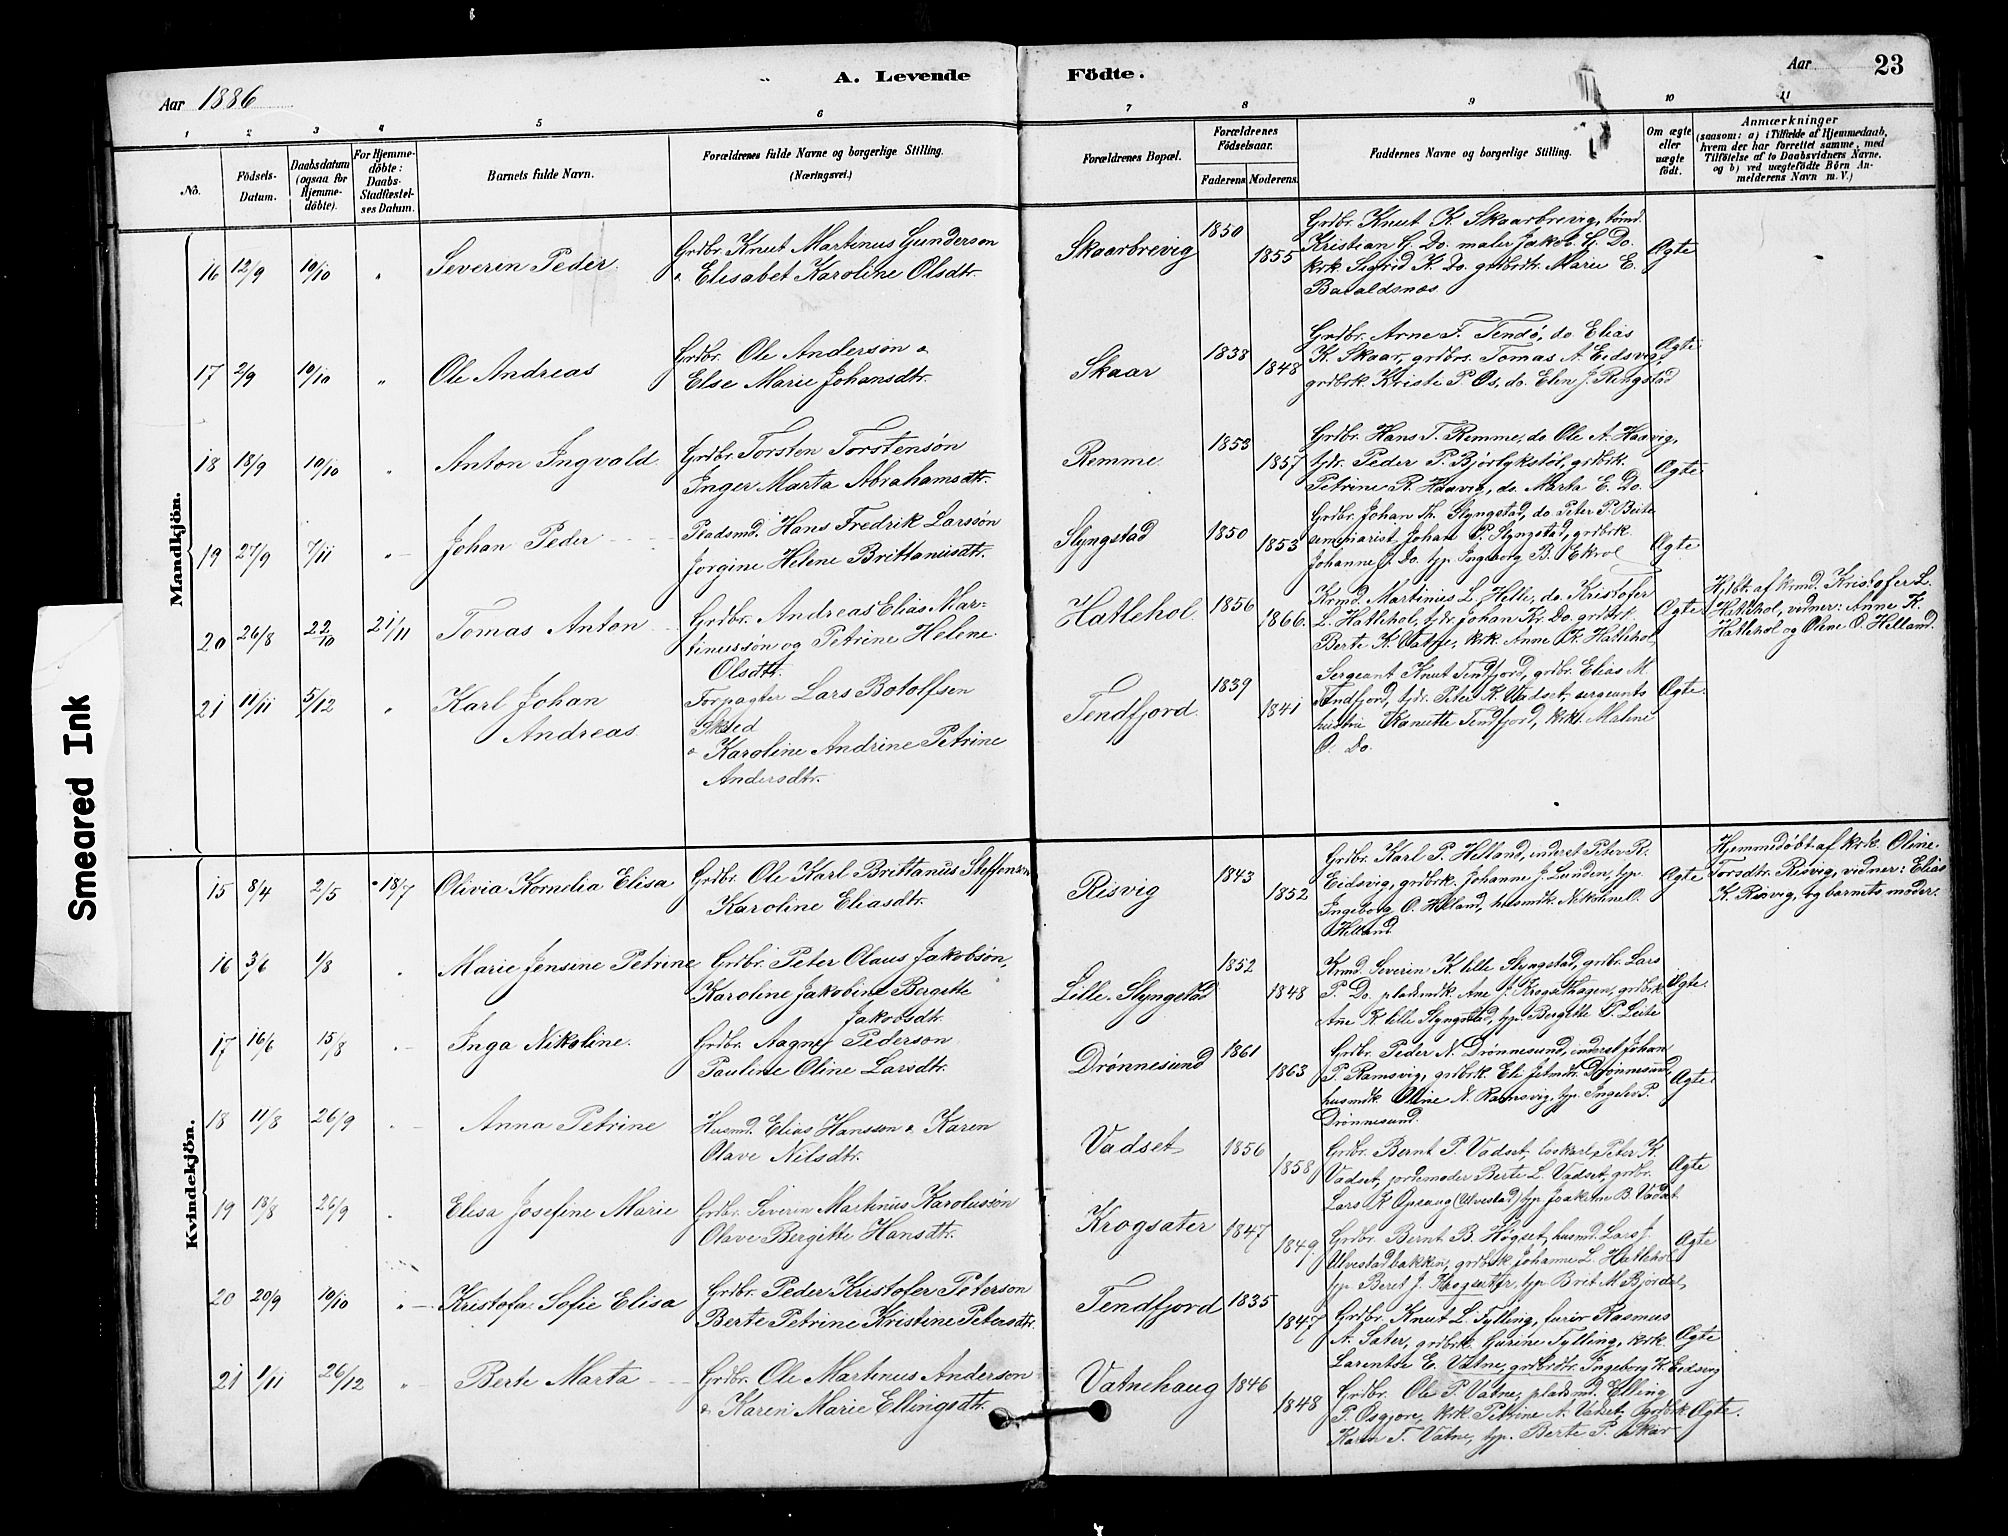 A. Levende Födte.
Aar 1886
Aar 23
1 2 3 4 5 6 7 8 9 10 11
No.
Födsels-Datum.
Daabsdatum (ogsaa for Hjemmedöbte).
For Hjemmedöbte: Daabs-Stadfæstelses Datum.
Barnets fulde Navn.
Forældrenes fulde Navne og borgerlige Stilling. (Næringsvei.)
Forældrenes Bopæl.
Forældrenes Födselsaar.
Faderens. Moderens.
Faddernes Navne og borgerlige Stilling.
Om ægte eller uægte födt.
Anmærkninger
(saasom: a) i Tilfælde af Hjemmedaab,
hvem der har forrettet samme, med
Tilföielse af to Daabsvidners Navne,
og b) ved uægtefödte Börn An-
melderens Navn m. V.)
Smeared Ink
Mandkjön.
16 12/9 10/10 " Severin Peder Grdbr. Knut Martinus Gunderson
& Elisabet Karoline Olsdtr. Skaarbrevig 1850 1855
Grdbr. Knut K. Skaarbrevig, tømd.
Kristian G. Do. maler Jakob G. Do.
krk. Sigrid K. Do. grdbrdtr. Marie E.
Baraldsnes. Ægte
17 2/9 10/10 " Ole Andreas Grdbr. Ole Anderson &
Else Marie Johansdtr. Skaar 1838 1848
Grdbr. Arne T. Tendø, do. Elias
K. Skaar, grdbrs. Tomas A. Eidsvig,
grdbrk. Kriste P. Os, do. Elen J. Ringstad Ægte
18 18/9 10/10 " Anton Ingvald Grdbr. Torsten Torstensøn
Inger Marta Abrahamsdtr. Remme 1853 1857
Grdbr. Hans T. Remme, do Ole A. Haavig,
tjdr. Peder P. Bjørlykstøl, grdbrk.
Petrine R. Haavig, do. Marta E. Do. Ægte
19 27/9 7/11 " Johan Peder Pladsmd. Hans Fredrik Larssøn
Jorgine Helene Brittanusdtr. Slyngstad 1850 1853
Grdbr. Johan Th. Slyngstad, do. Peter P. Beite
seminarist Johan P. Slyngstad, grdbrk.
Johanne J. Do. tjp. Ingeborg B. Ekrol Ægte
20 26/8 22/10 21/11 Tomas Anton Grdbr. Andreas Elias Mar-
tinussøn og Petrine Helene
Olsdtr. Hatlehol 1856 1866
Krmd. Martinus L. Helle, do. Kristofer
L. Hatlehol, tjdr. Johan Kr. Do. grdbrk.
Berte K. Vatne, krk. Anne K. Hatlehol Ægte
Hjdbt. af krmd. Kristofer L.
Hatlehol, vidner: Anne K.
Hatlehol og Oline O. Helland.
21 11/11 5/12 " Karl Johan
Andreas Forpagter Lars Botolfsen
& Karoline Andrine Petrine
Andersdtr. Tendfjord 1839 1841
Sergeant Knut Tendfjord, grdbr. Elias M.
Tendfjord, tjdr. Peter K. Vadset, sergeants
hustru Kanutte Tendfjord, krk. Malene
O. Do. Ægte
Kvindekjön.
15 8/4 2/5 18/7 Olivia Kornelia Elisa Grdbr. Ole Karl Brittanus Steffenson
Karoline Eliasdtr. Risvig 1843 1852
Grdbr. Karl P. Helland, inderst Peter R.
Eidsvig, grdbrk. Johanne J. Lunden, tjp.
Ingeborg O. Helland, husmdk. Nikoline O.
Helland Ægte
Hjemmedøbt af krk. Oline
Torsdtr. Risvig, vidner: Elias
K. Risvig, og barnets moder.
16 3/6 1/8 " Marie Jensine Petrine Grdbr. Peter Olaus Jakobsøn,
Karoline Jakobine Bergitte
Jakobsdtr. Lille-Slyngstad 1852 1848
Krmd. Severin K. Lille Slyngstad, grdbr. Lars
P. Do. pladsmdk. Ane J. Krogsethagen, grdbrk.
Ane K. Lille Slyngstad, tjp. Bergitte P. Leite Ægte.
17 16/6 15/8 " Inga Nikoline. Grdbr. Aagne Pederson
Pauline Oline Larsdtr. Drønnesund 1861 1863
Grdbr. Peder N. Drønnesund, inderst Johan
P. Ramsvig, grdbrk. Eli Jetmdtr. Drønnesund,
husmdk. Oline N. Ramsvig, tjp. Ingeborg P.
Drønnesund. Ægte.
18 11/8 26/9 " Anna Petrine Husmd. Elias Hansson & Karen
Olave Nilsdtr. Vadset 1856 1858
Grdbr. Bernt P. Vadset, løskarl Peter K.
Vadset, jordemoder Berte L. Vadset, grdbr.
Lars K. Opsaug (Ulvestad) tjp. Joakime B. Vadset Ægte
19 18/8 26/9 " Elisa Josefine Marie Grdbr. Severin Martinus Karolussøn
Olave Bergitte Hansdtr. Krogsæter 1847 1849
Grdbr. Bernt B. Høgset, husmd. Lars J.
Ulvestadbakken, grdbrk. Johanne L. Hatlehol
tjp. Beret J. Krogsæter, tjp. Brit M. Bjørdal Ægte
20 20/9 10/10 " Kristofa Sofie Elisa Grdbr. Peder Kristofer Peterson
Berte Petrine Kristine Petersdtr. Tendfjord 1835 1847
Grdbr. Knut L. Tylling, furér Rasmus
A. Sæter, grdbrk. Gurine Tylling, krk.
Larentse E. Vatne, grdbrdtr. Ingeborg K. Eidsvig Ægte
21 1/11 26/12 " Berte Marta Grdbr. Ole Martinus Anderson
& Karen Marie Ellingsdtr. Vatnehaug 1846 1848
Grdbr. Ole P. Vatne, pladsmd. Elling
P. Osgjore, krk. Petrine A. Vadset, grdbrk
Karen T. Vatne, tjp. Berte P. Skar Ægte.